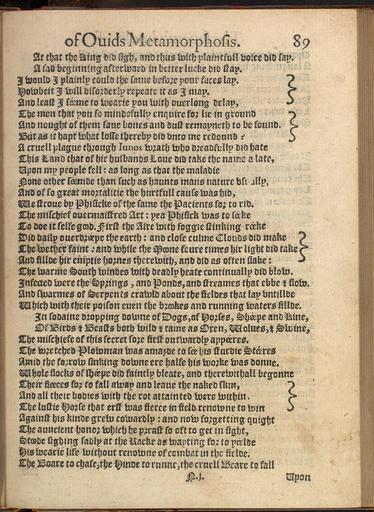 of Ouids Metamorphosis. 89
At that the King did sigh, and thus with plaintfull voice did say.
A sad beginning afterward in better lucke did stay.
I would I plainly could the same before your faces lay.
Howbeit I will disorderly repeate it as I may.
And least I seeme to wearie you with ouerlong delay,
The men that you so mindefully enquire for lie in ground
And nought of them saue bones and dust remayneth to be found.
But as it hapt what losse thereby did vnto me redound :
A cruell plague through Iunos wrath who dreadfully did hate
This Land that of hir husbands Loue did take the name a late,
Upon my people fell : as long as that the maladie
None other seemde than such as haunts mans nature vsually,
And of so great mortalitie the hurtfull cause was hid,
We stroue by Phisicke of the same the Pacients for to rid.
The mischief ouermaistred Art : yea Phisick was to seeke
To doe it selfe good. First the Aire with foggie stinking reeke
Did daily ouerdreepe the earth : and close culme Clouds did make
The wether faint : and while the Moone foure times hir light did take
And fillde hir emptie hornes therewith, and did as often slake :
The warme South windes with deadly heate continually did blow.
Infected were the Springs, and Ponds, and streames that ebbe & flow.
And swarmes of Serpents crawld about the fieldes that lay vntillde
Which with their poison euen the brookes and running waters fillde.
In sodaine dropping downe of Dogs, of Horses, Sheepe and Kine,
Of Birds & Beasts both wild & tame as Oxen, Wolues, & Swine,
The mischiefe of this secret sore first outwardly appeeres.
The wretched Plowman was amazde to see his sturdie Steeres
Amid the forrow sinking downe ere halfe his worke was donne.
Whole flocks of sheepe did faintly bleate, and therewithall begonne
Their fleeces for to fall away and leaue the naked skin,
And all their bodies with the rot attainted were within.
The lustie Horse that erst was fierce in field renowne to win
Against his kinde grew cowardly : and now forgetting quight
The auncient honor which he preast so oft to get in fight,
Stoode sighing sadly at the Racke as wayting for to yeelde
His wearie life without renowne of combat in the fielde.
The Boare to chafe, the Hinde to runne, the cruell Beare to fall
N.j. Upon